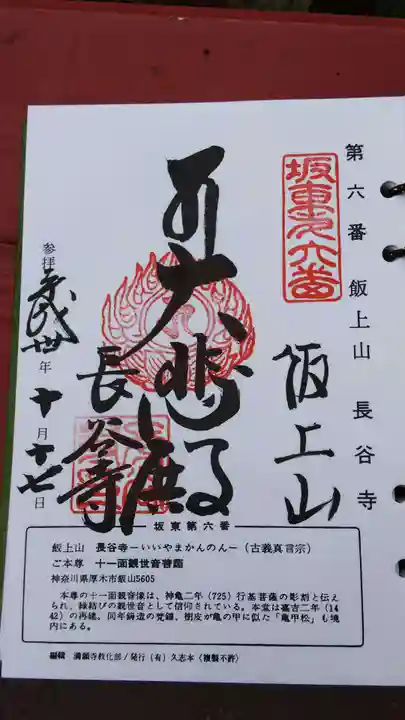 第六番 飯上山 長谷寺
坂東第六番
飯上山
大悲殿
長谷寺
参拝 平成 廿 年 十 月 十七 日
坂東第六番
飯上山 長谷寺ーいいやまかんのんー(古義真言宗)
ご本尊 十一面観世音菩薩
神奈川県厚木市飯山5605
本尊の十一面観音像は、神亀二年(725)行基菩薩の彫刻と伝え
られ、縁結びの観世音として信仰されている。本堂は嘉吉二年(14
42)の再建、同年鋳造の梵鐘、樹皮が亀の甲に似た「亀甲松」も境
内にある。
編輯 満願寺教化部/発行(有)久志本〈複製不許〉